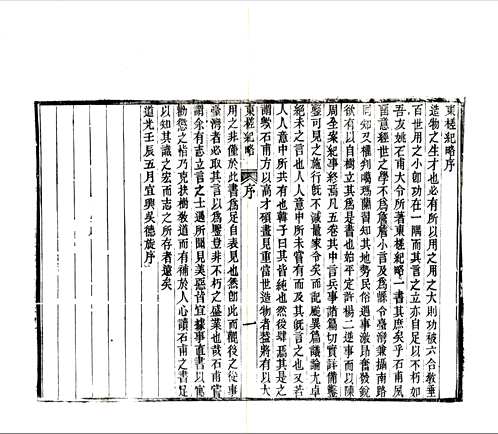 東槎紀略序
造物之生才也必有所以用之用之大則功被六合敎垂
百世用之小卽功在一隅而其言之立亦自足以不朽如
吾友姚石甫大令所著東槎紀略一書其庶矣乎石甫夙
言意經世之學不爲詹詹小言及爲縣令臺灣兼攝南路
同知又權判噶瑪蘭習知其地勢民俗遇事激昂奮發銳
欲有以自樹立其爲是書也始平定許楊二逆事而以陳
周全案紀事終焉凡五卷其中言兵事諸篇切實詳備鑿
鑿可見之施行旣不減量家令矣而記颺異篇議論尤卓
絕未之言也人人意中所未嘗有而及其旣言之也又若
人人意中所共有也韓子曰其皆純也然後肆焉其是之
謂歟石甫方以高才碩畫見重當世造物者蓋將有以大
東槎紀略 序 一
用之非僅於此書爲足自表見也然卽此而觀後之從事
臺灣者必取其言以爲鑒豈非不朽之盛業也哉石甫嘗
謂余有志立言之士遇所聞見美惡皆宜據事直書以寓
勸懲之恉乃克扶樹敎道而有補於人心讀石甫之書足
以知其識之宏而志之所存者遠矣
道光壬辰五月宜興吳德旋序